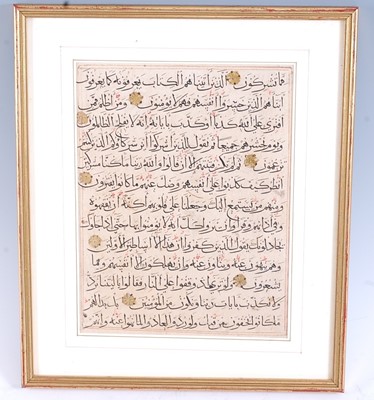 مما تشركون الذين آتيناهم الكتاب يعرفونه كما يعرفون
أبناءهم الذين خسروا أنفسهم فهم لا يؤمنون ومن أظلم ممن
افترى على الله كذبا أو كذب بآياته إنه لا يفلح الظالمون
ويوم نحشرهم جميعا ثم نقول للذين أشركوا أين شركاؤكم الذين كنتم
تزعمون ثم لم تكن فتنتهم إلا أن قالوا والله ربنا ما كنا مشركين
انظر كيف كذبوا على أنفسهم وضل عنهم ما كانوا يفترون
ومنهم من يستمع إليك وجعلنا على قلوبهم أكنة أن يفقهوه
وفي آذانهم وقرا وإن يروا كل آية لا يؤمنوا بها حتى إذا جاءوك
يجادلونك يقول الذين كفروا إن هذا إلا أساطير الأولين
وهم ينهون عنه وينأون عنه وإن يهلكون إلا أنفسهم وما
يشعرون ولو ترى إذ وقفوا على النار فقالوا يا ليتنا نرد
ولا نكذب بآيات ربنا ونكون من المؤمنين بل بدا لهم
ما كانوا يخفون من قبل ولو ردوا لعادوا لما نهوا عنه وإنهم